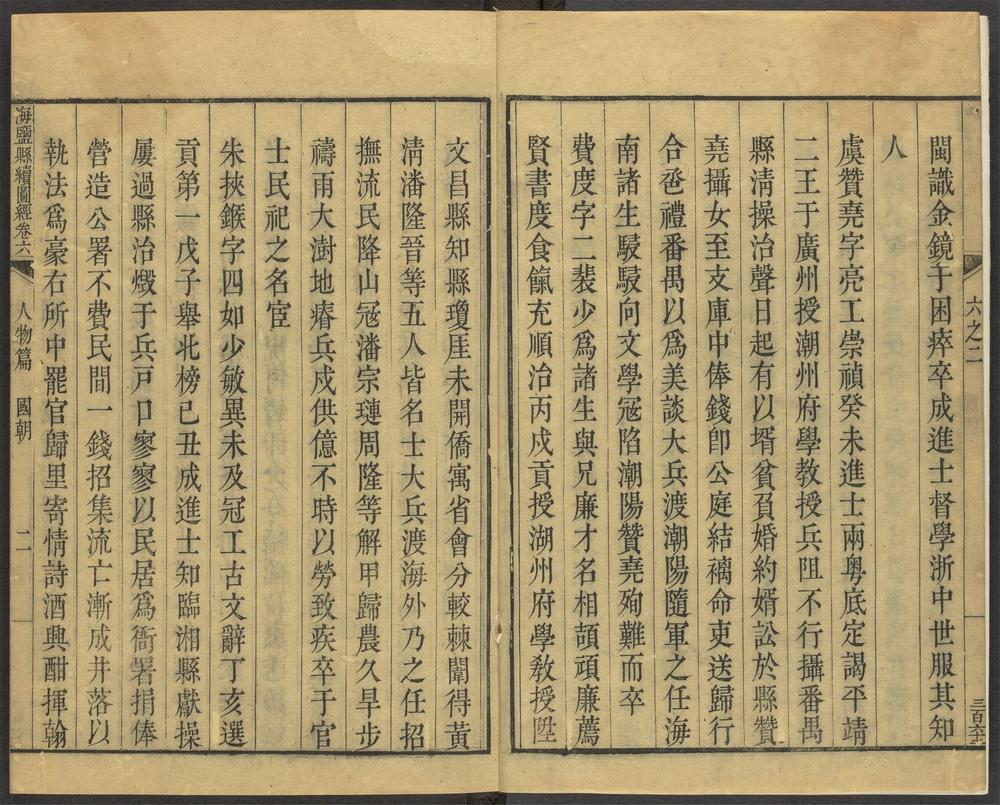 六之二
三百六十
閩識金鏡于困瘁卒成進士督學浙中世服其知
人
虞贊堯字亮工崇禎癸未進士兩粤底定謁平靖
二王于廣州授潮州府學教授兵阻不行攝番禺
縣清操治聲日起有以壻貧負婚約婿訟於縣贊
堯攝女至支庫中俸錢卽公庭結褵命吏送歸行
合巹禮番禺以爲美談大兵渡潮陽隨軍之任海
南諸生駸駸向文學冦陷潮陽贊堯殉難而卒
費度字二裴少爲諸生與兄廉才名相頡頏廉薦
賢書度食餼充順治丙戌貢授湖州府學教授陞
文昌縣知縣瓊厓未開僑寓省會分較棘闈得黃
淸潘隆晉等五人皆名士大兵渡海外乃之任招
撫流民降山冦潘宗璉周隆等解甲歸農久旱步
禱雨大澍地瘠兵戍供億不時以勞致疾卒于官
士民祀之名宦
朱挾鍭字四如少敏異未及冠工古文辭丁亥選
貢第一戊子舉北榜已丑成進士知臨湘縣獻操
屢過縣治燬于兵戸口寥寥以民居爲衙署捐俸
營造公署不費民間一錢招集流亡漸成井落以
執法爲豪右所中罷官歸里寄情詩酒興酣揮翰
海鹽縣續圖經卷六
人物篇
國朝
二